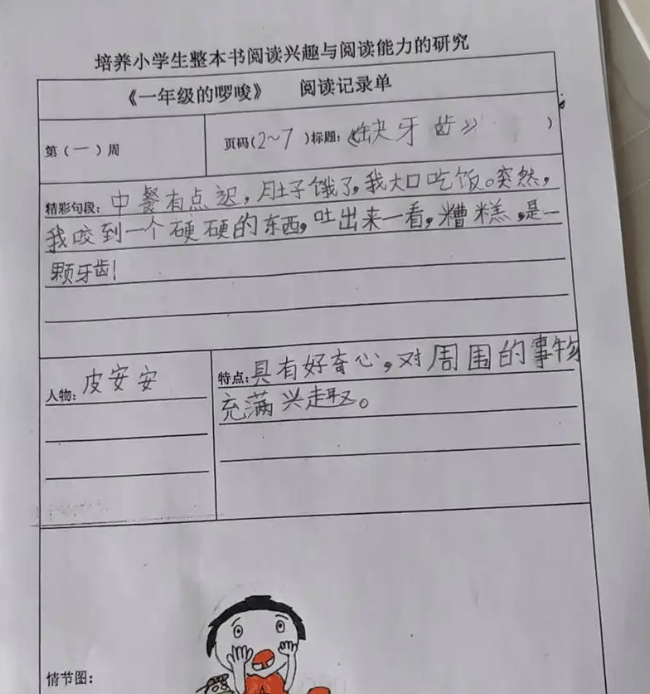 培养小学生整本书阅读兴趣与阅读能力的研究
《一年级的啰唆》 阅读记录单
第（一）周
页码（2~7）标题：《缺牙齿》）
精彩句段：中餐有点迟，肚子饿了，我大口吃饭。突然，
我咬到一个硬硬的东西，吐出来一看，糟糕，是一
颗牙齿！
人物：皮安安
特点：具有好奇心，对周围的事物
充满兴趣。
情节图：